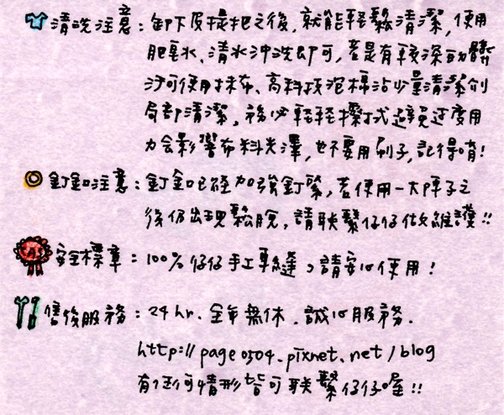 清洗注意：卸下皮提把之後，就能輕鬆清潔，使用
肥皂水、清水沖洗即可，若是有較深的髒
污可使用抹布、高科技泡棉沾少量清潔劑
局部清潔，務必輕輕擦拭避免過度用
力會影響布料光澤，也不要用刷子，記得唷！
釘釦注意：釘釦已經加強釘緊，若使用一大陣子之
後仍出現鬆脫，請联繫仔仔做維護!!
安全標章：100%仔仔手工車縫，請安心使用！
售後服務：24 hr. 全年無休．誠心服務．
http://page0504.pixnet.net/blog
有任何情形皆可联繫仔仔喔!!